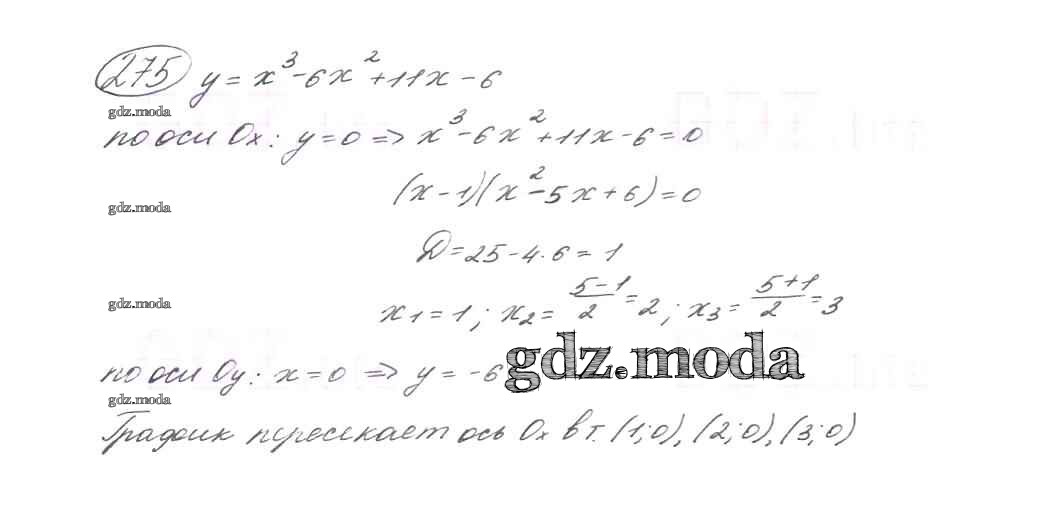 275 y = x³ - 6x² + 11x - 6
gdz.moda
по оси Ox: y = 0 => x³ - 6x² + 11x - 6 = 0
(x - 1)(x² - 5x + 6) = 0
gdz.moda
D = 25 - 4·6 = 1
gdz.moda
x₁ = 1; x₂ = (5-1)/2 = 2; x₃ = (5+1)/2 = 3
gdz.moda
по оси Oy: x = 0 => y = -6
gdz.moda
График пересекает ось Ox в т. (1;0), (2;0), (3;0)